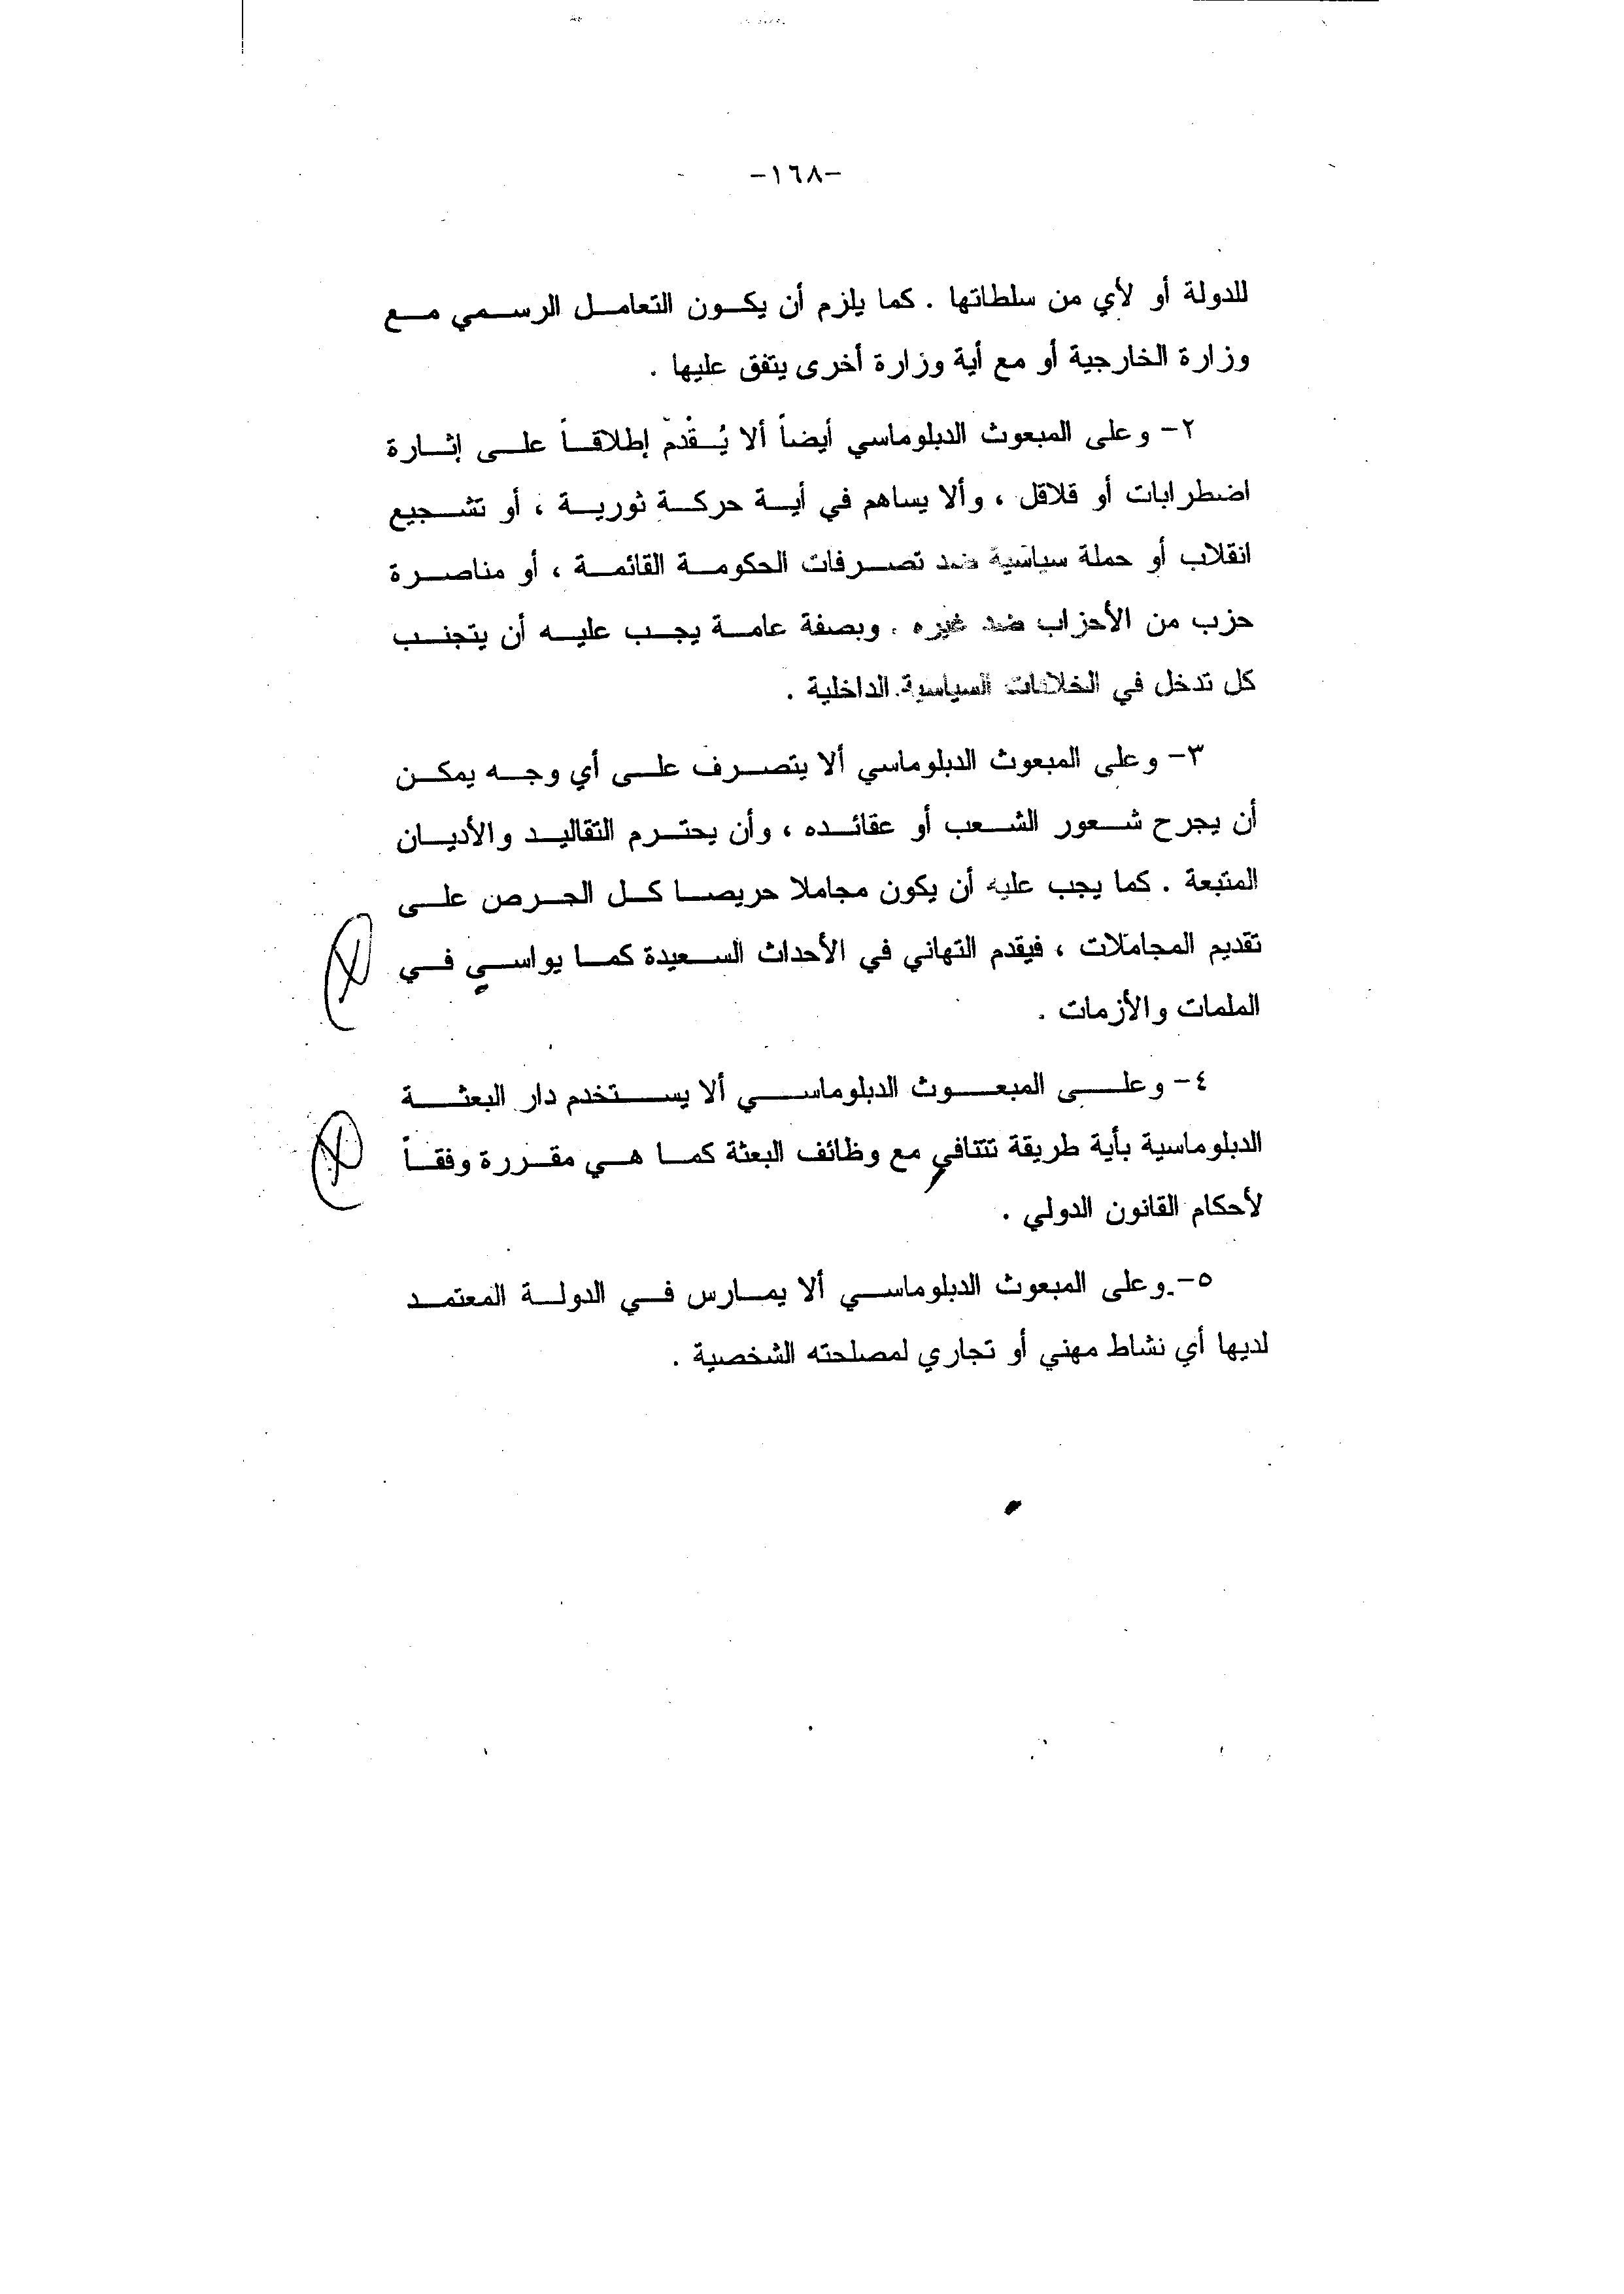 -١٦٨-
للدولة أو لأي من سلطاتها . كما يلزم أن يكون التعامل الرسمي مع
وزارة الخارجية أو مع أية وزارة أخرى يتفق عليها .
٢- وعلى المبعوث الدبلوماسي أيضاً ألا يُقْدم إطلاقاً على إثارة
اضطرابات أو قلاقل ، وألا يساهم في أية حركة ثورية ، أو تشجيع
انقلاب أو حملة سياسية ضد تصرفات الحكومة القائمة ، أو مناصرة
حزب من الأحزاب ضد غيره . وبصفة عامة يجب عليه أن يتجنب
كل تدخل في الخلافات السياسية الداخلية .
٣- وعلى المبعوث الدبلوماسي ألا يتصرف على أي وجه يمكن
أن يجرح شعور الشعب أو عقائده ، وأن يحترم التقاليد والأديان
المتبعة . كما يجب عليه أن يكون مجاملا حريصا كل الحرص على
تقديم المجاملات ، فيقدم التهاني في الأحداث السعيدة كما يواسي في
الملمات والأزمات .
٤- وعلى المبعوث الدبلوماسي ألا يستخدم دار البعثة
الدبلوماسية بأية طريقة تتنافي مع وظائف البعثة كما هي مقررة وفقاً
لأحكام القانون الدولي .
٥- وعلى المبعوث الدبلوماسي ألا يمارس في الدولة المعتمد
لديها أي نشاط مهني أو تجاري لمصلحته الشخصية .